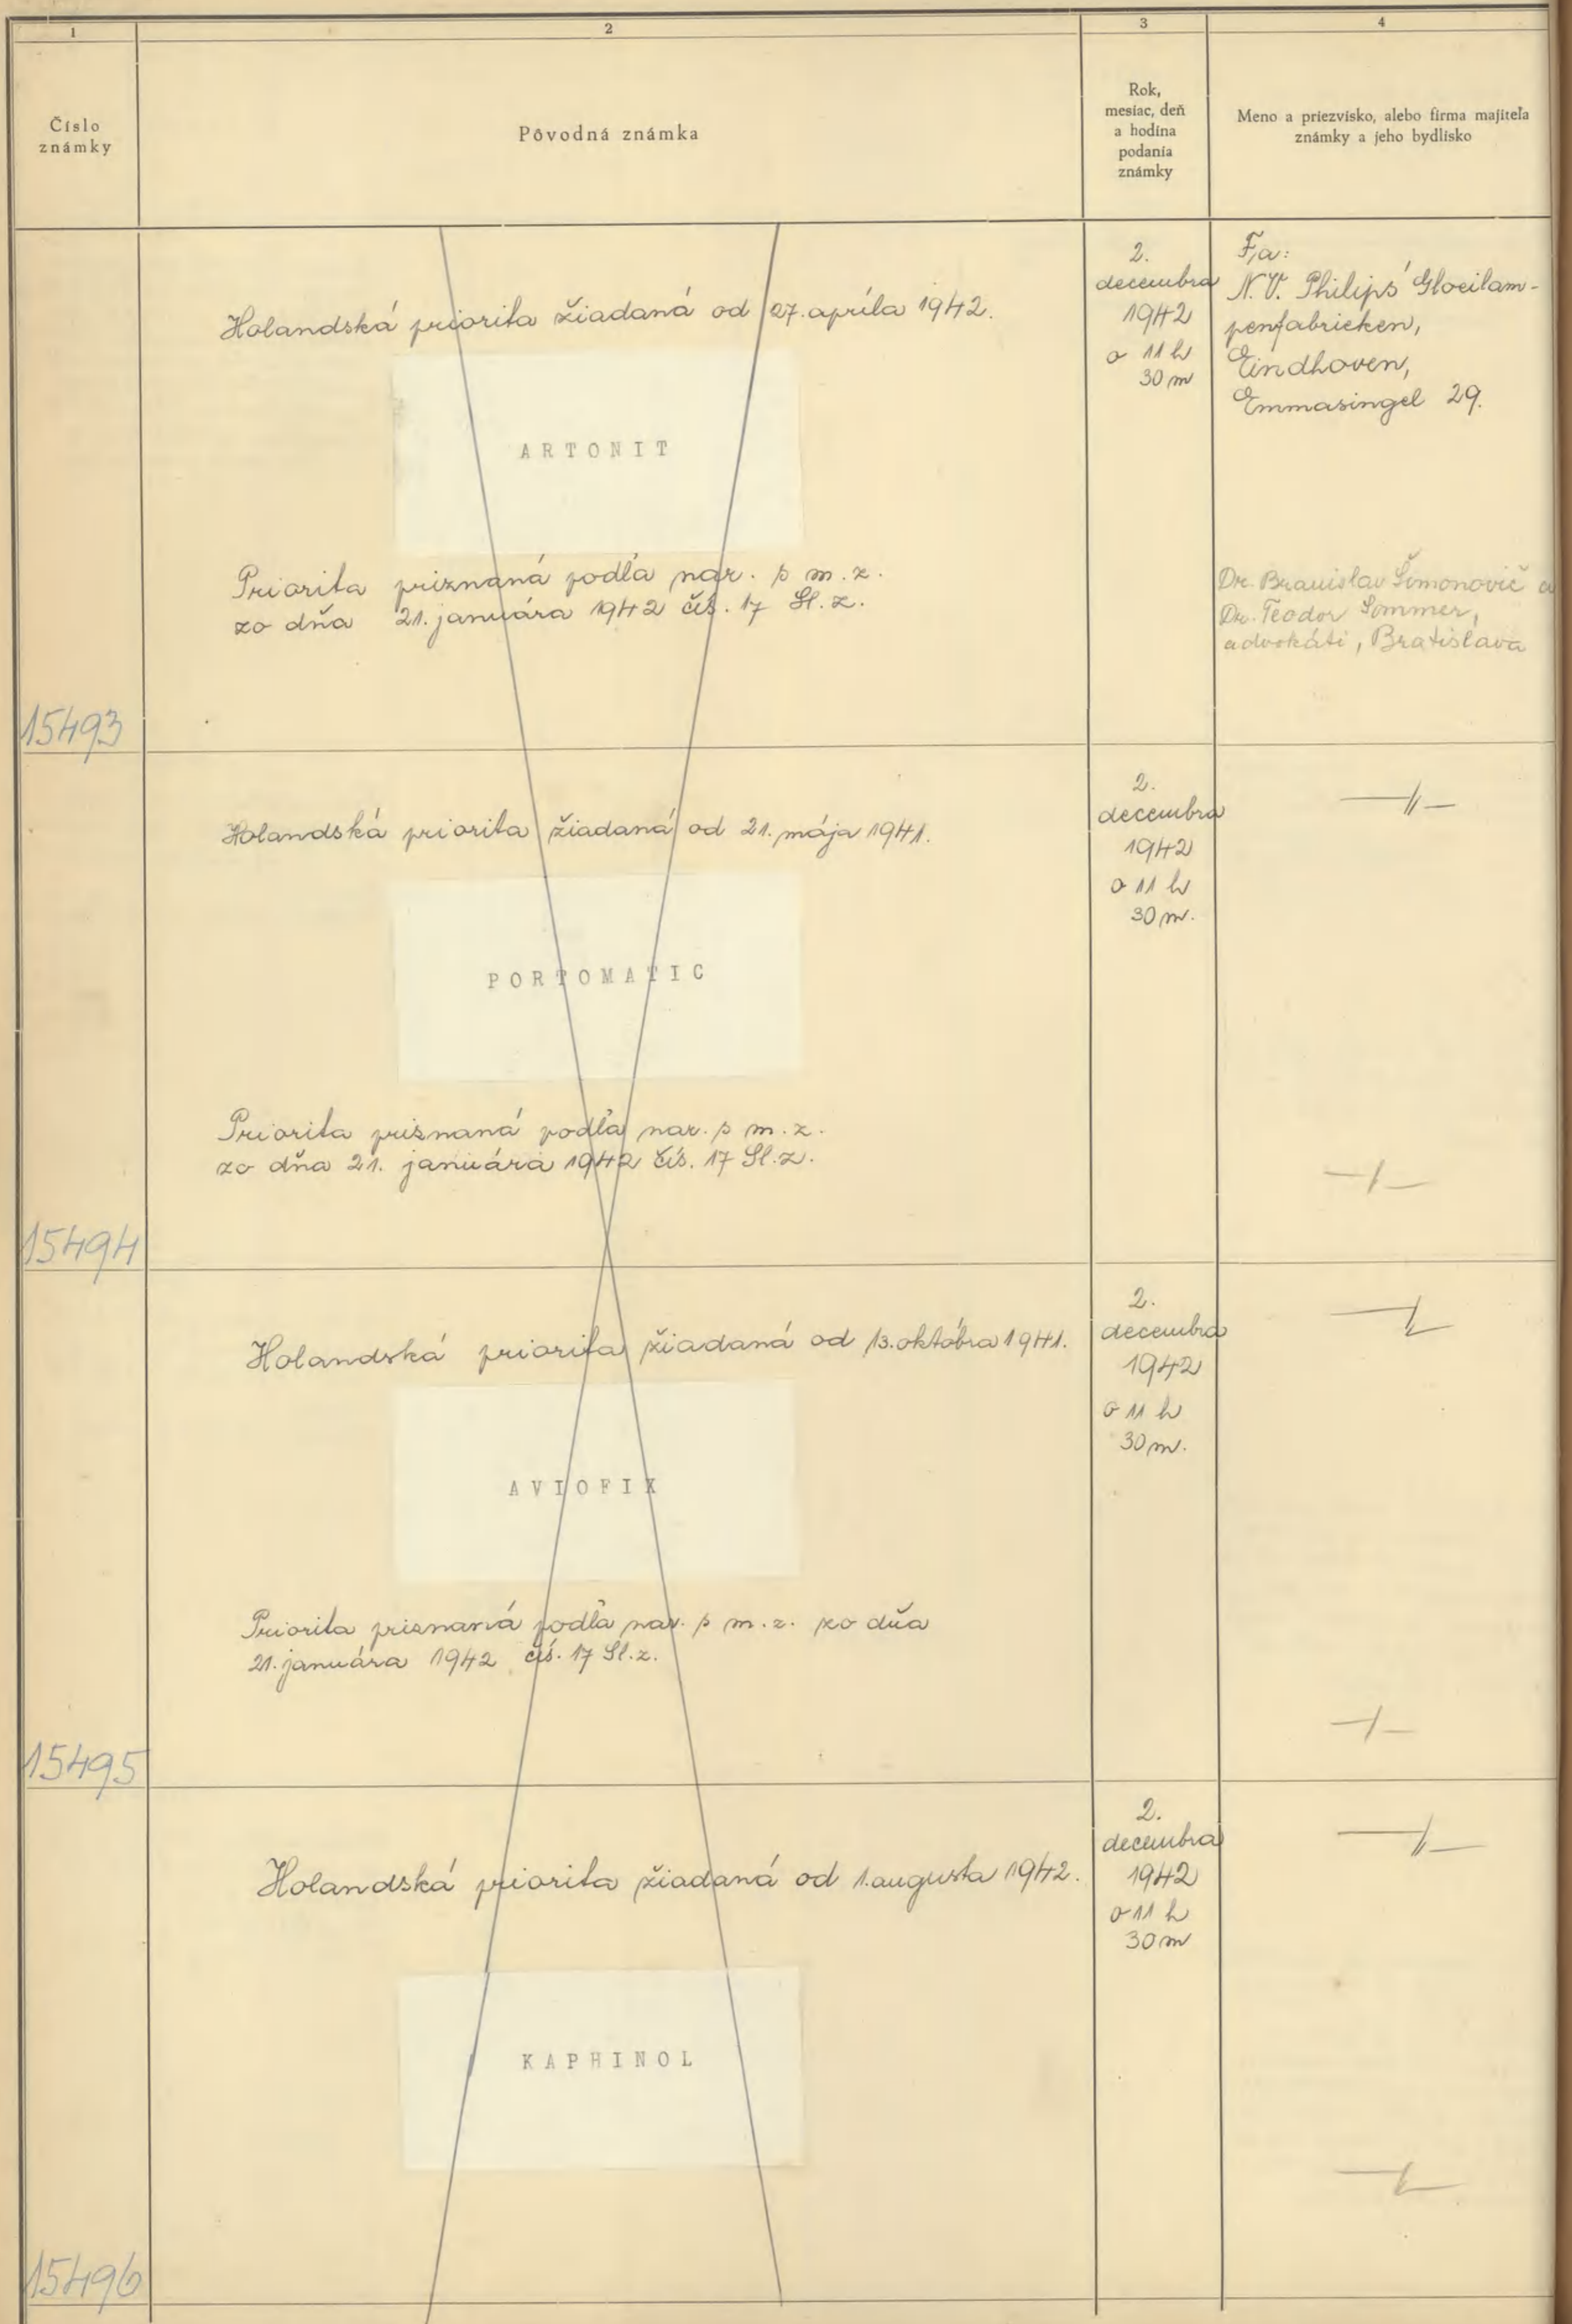 1
2
3
4
Číslo
známky
Pôvodná známka
Rok,
mesiac, deň
a hodina
podania
známky
Meno a priezvisko, alebo firma majiteľa
známky a jeho bydlisko
Holandská priorita žiadaná od 27. apríla 1942.
ARTONIT
Priorita priznaná podľa nar. s m. z.
zo dňa 21. januára 1942 čís. 17 Sl. z.
15493
2.
decembra
1942
o 11 h
30 m
F,a:
N. V. Philips' Gloeilam-
penfabrieken,
Eindhoven,
Emmasingel 29.
Dr. Branislav Šimonovič a
Dr. Teodor Sommer,
advokáti, Bratislava
Holandská priorita žiadaná od 21. mája 1941.
PORTOMATIC
Priorita priznaná podľa nar. s m. z.
zo dňa 21. januára 1942 čís. 17 Sl. z.
15494
2.
decembra
1942
o 11 h
30 m.
—//—
—/—
Holandská priorita žiadaná od 13. októbra 1941.
AVIOFIX
Priorita priznaná podľa nar. s m. z. zo dňa
21. januára 1942 čís. 17 Sl. z.
15495
2.
decembra
1942
o 11 h
30 m.
—//—
—/—
Holandská priorita žiadaná od 1. augusta 1942.
KAPHINOL
15496
2.
decembra
1942
o 11 h
30 m
—//—
—//—